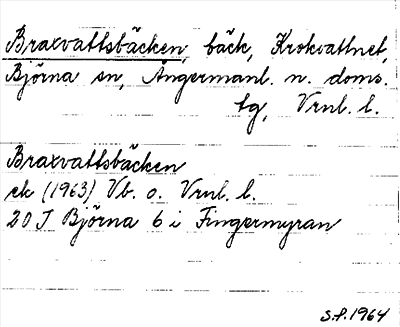 Braxvattsbäcken, bäck, Krokvattnet,
Björna sn, Ångermanl. n. doms.
tg, Vrnl. l.
Braxvattsbäcken
ek (1963) Vb. o. Vrnl. l.
20 J Björna 6 i Fingermyran
S.P. 1964